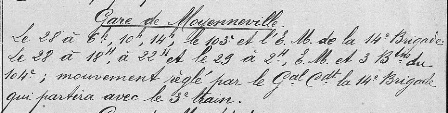 Gare de Moyenneville.
Le 28 à 6h, 10h, 14h, le 103e et l'E. M. de la 14e Brigade
Le 28 à 18h, à 22h et le 29 à 2h, E. M. et 3 Btns du
104e ; mouvement réglé par le Gal Cdt la 14e Brigade
qui partira avec le 3e train.